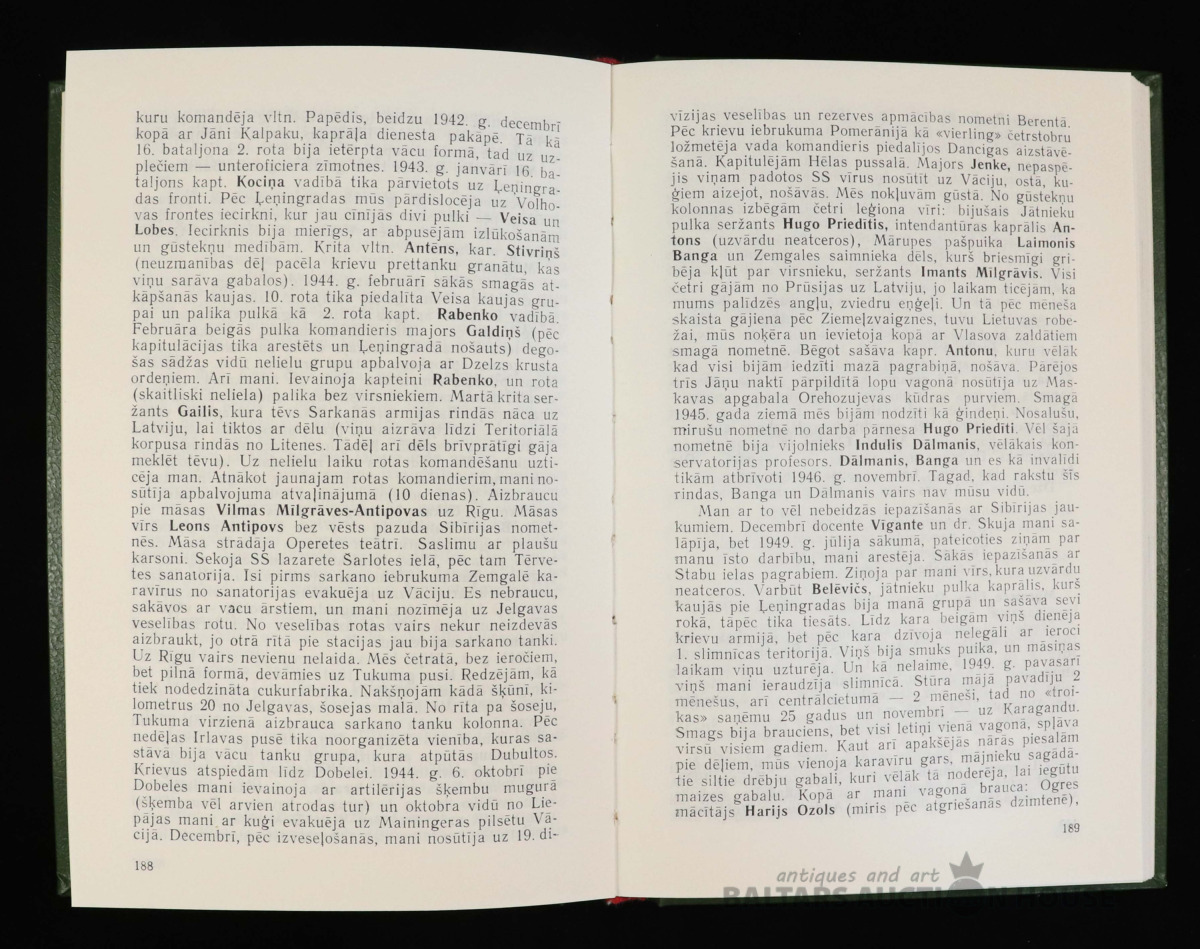 kuru komandēja vltn. Papēdis, beidzu 1942. g. decembrī
kopā ar Jāni Kalpaku, kaprāļa dienesta pakāpē. Tā kā
16. bataljona 2. rota bija ietērpta vācu formā, tad uz uz-
plečiem — unteroficiera zīmotnes. 1943. g. janvārī 16. ba-
taljons kapt. Kociņa vadībā tika pārvietots uz Ļeņingra-
das fronti. Pēc Ļeņingradas mūs pārdislocēja uz Volho-
vas frontes iecirkni, kur jau cīnījās divi pulki — Veisa un
Lobes. Iecirknis bija mierīgs, ar abpusējām izlūkošanām
un gūstekņu medībām. Krita vltn. Antēns, kar. Stivriņš
(neuzmanības dēļ pacēla krievu prettanku granātu, kas
viņu sarāva gabalos). 1944. g. februārī sākās smagās at-
kāpšanās kaujas. 10. rota tika piedalīta Veisa kaujas gru-
pai un palika pulkā kā 2. rota kapt. Rabenko vadībā.
Februāra beigās pulka komandieris majors Galdiņš (pēc
kapitulācijas tika arestēts un Ļeņingradā nošauts) dego-
šas sādžas vidū nelielu grupu apbalvoja ar Dzelzs krusta
ordeņiem. Arī mani. Ievainoja kapteini Rabenko, un rota
(skaitliski neliela) palika bez virsniekiem. Martā krita ser-
žants Gailis, kura tēvs Sarkanās armijas rindās nāca uz
Latviju, lai tiktos ar dēlu (viņu aizrāva līdzi Teritoriālā
korpusa rindās no Litenes. Tādēļ arī dēls brīvprātīgi gāja
meklēt tēvu). Uz nelielu laiku rotas komandēšanu uzti-
cēja man. Atnākot jaunajam rotas komandierim, mani no-
sūtīja apbalvojuma atvaļinājumā (10 dienas). Aizbraucu
pie māsas Vilmas Mīlgrāves-Antipovas uz Rīgu. Māsas
vīrs Leons Antipovs bez vēsts pazuda Sibīrijas nomet-
nēs. Māsa strādāja Operetes teātrī. Saslimu ar plaušu
karsoni. Sekoja SS lazarete Šarlotes ielā, pēc tam Tērve-
tes sanatorija. Īsi pirms sarkano iebrukuma Zemgalē ka-
ravīrus no sanatorijas evakuēja uz Vāciju. Es nebraucu,
sakāvos ar vācu ārstiem, un mani nozīmēja uz Jelgavas
veselības rotu. No veselības rotas vairs nekur neizdevās
aizbraukt, jo otrā rītā pie stacijas jau bija sarkano tanki.
Uz Rīgu vairs nevienu nelaida. Mēs četratā, bez ieročiem,
bet pilnā formā, devāmies uz Tukuma pusi. Redzējām, kā
tiek nodedzināta cukurfabrika. Nakšņojām kādā šķūnī, ki-
lometrus 20 no Jelgavas, šosejas malā. No rīta pa šoseju,
Tukuma virzienā aizbrauca sarkano tanku kolonna. Pēc
nedēļas Irlavas pusē tika noorganizēta vienība, kuras sa-
stāvā bija vācu tanku grupa, kura atpūtās Dubultos.
Krievus atspiedām līdz Dobelei. 1944. g. 6. oktobrī pie
Dobeles mani ievainoja ar artilērijas šķembu mugurā
(šķemba vēl arvien atrodas tur) un oktobra vidū no Lie-
pājas mani ar kuģi evakuēja uz Mainingeras pilsētu Vā-
cijā. Decembrī, pēc izveseļošanās, mani nosūtīja uz 19. di-
188
vīzijas veselības un rezerves apmācības nometni Berentā.
Pēc krievu iebrukuma Pomerānijā kā «vierling» četrstobru
ložmetēja vada komandieris piedalījos Dancigas aizstāvē-
šanā. Kapitulējām Hēlas pussalā. Majors Jenke, nepaspē-
jis viņam padotos SS vīrus nosūtīt uz Vāciju, ostā, ku-
ģiem aizejot, nošāvās. Mēs nokļuvām gūstā. No gūstekņu
kolonnas izbēgām četri leģiona vīri: bijušais Jātnieku
pulka seržants Hugo Priedītis, intendantūras kaprālis An-
tons (uzvārdu neatceros), Mārupes pašpuika Laimonis
Banga un Zemgales saimnieka dēls, kurš briesmīgi gri-
bēja kļūt par virsnieku, seržants Imants Mīlgrāvis. Visi
četri gājām no Prūsijas uz Latviju, jo laikam ticējām, ka
mums palīdzēs angļu, zviedru eņģeļi. Un tā pēc mēneša
skaista gājiena pēc Ziemeļzvaigznes, tuvu Lietuvas robe-
žai, mūs noķēra un ievietoja kopā ar Vlasova zaldātiem
smagā nometnē. Bēgot sašāva kapr. Antonu, kuru vēlāk
kad visi bijām iedzīti mazā pagrabiņā, nošāva. Pārējos
trīs Jāņu naktī pārpildītā lopu vagonā nosūtīja uz Mas-
kavas apgabala Orehozujevas kūdras purviem. Smagā
1945. gada ziemā mēs bijām nodzīti kā ģindeņi. Nosalušu,
mirušu nometnē no darba pārnesa Hugo Priedīti. Vēl šajā
nometnē bija vijolnieks Indulis Dālmanis, vēlākais kon-
servatorijas profesors. Dālmanis, Banga un es kā invalīdi
tikām atbrīvoti 1946. g. novembrī. Tagad, kad rakstu šīs
rindas, Banga un Dālmanis vairs nav mūsu vidū.
Man ar to vēl nebeidzās iepazīšanās ar Sibīrijas jau-
kumiem. Decembrī docente Vīgante un dr. Skuja mani sa-
lāpīja, bet 1949. g. jūlija sākumā, pateicoties ziņām par
manu īsto darbību, mani arestēja. Sākās iepazīšanās ar
Stabu ielas pagrabiem. Ziņoja par mani vīrs, kura uzvārdu
neatceros. Varbūt Belēvičs, jātnieku pulka kaprālis, kurš
kaujās pie Ļeņingradas bija manā grupā un sašāva sevi
rokā, tāpēc tika tiesāts. Līdz kara beigām viņš dienēja
krievu armijā, bet pēc kara dzīvoja nelegāli ar ieroci
1. slimnīcas teritorijā. Viņš bija smuks puika, un māsiņas
laikam viņu uzturēja. Un kā nelaime, 1949. g. pavasarī
viņš mani ieraudzīja slimnīcā. Stūra mājā pavadīju 2
mēnešus, arī centrālcietumā — 2 mēneši, tad no «troi-
kas» saņēmu 25 gadus un novembrī — uz Karagandu.
Smags bija brauciens, bet visi letiņi vienā vagonā, spļāva
virsū visiem gadiem. Kaut arī apakšējās nārās piesalām
pie dēļiem, mūs vienoja karavīru gars, mājnieku sagādā-
tie siltie drēbju gabali, kuri vēlāk tā noderēja, lai iegūtu
maizes gabalu. Kopā ar mani vagonā brauca: Ogres
mācītājs Harijs Ozols (miris pēc atgriešanās dzimtenē),
189
antiques and art
BALTARS AUCTION HOUSE